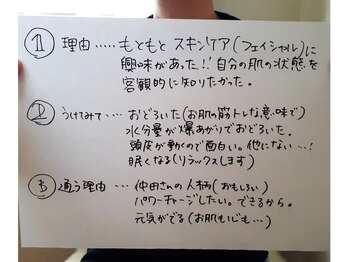 ① 理由‥‥‥もともと スキンケア(フェイシャル)に
興味があった!!自分の肌の状態を
客観的に知りたかった。
② うけてみて‥‥おどろいた(お肌の筋トレな意味で)
水分量が爆あがりでおどろいた。
頭皮が動くので面白い。他にない…!
眠くなる(リラックスします)
③ 通う理由 … 仲田さんの人柄(おもしろい)
パワーチャージしたい。できるから。
元気がでる(お肌も心も…)